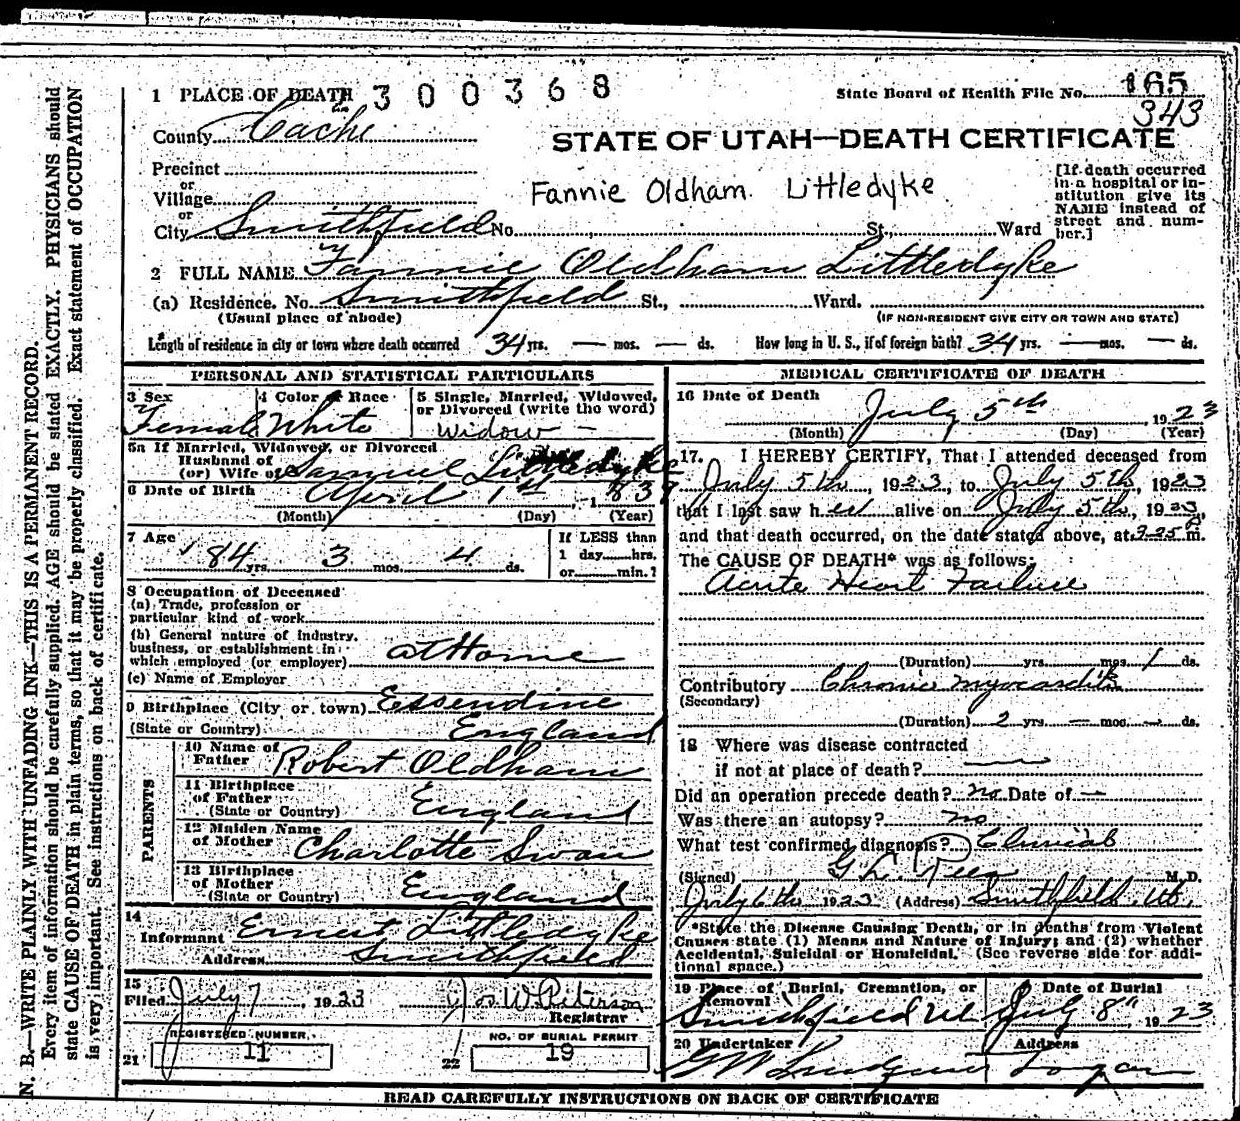 1 PLACE OF DEATH 2300368
State Board of Health File No. 165
343
County Cache
STATE OF UTAH—DEATH CERTIFICATE
Precinct
or
Village
or
City Smithfield No. St., Ward
Fannie Oldham Littledyke
[If death occurred
in a hospital or in-
stitution give its
NAME instead of
street and num-
ber.]
2 FULL NAME Fannie Oldham Littledyke
(a) Residence. No. Smithfield St., Ward.
(Usual place of abode) (IF NON-RESIDENT GIVE CITY OR TOWN AND STATE)
Length of residence in city or town where death occurred 34 yrs. — mos. — ds. How long in U. S., if of foreign birth? 34 yrs. — mos. — ds.
PERSONAL AND STATISTICAL PARTICULARS
3 Sex Female
4 Color or Race White
5 Single, Married, Widowed,
or Divorced (write the word)
widow —
5a If Married, Widowed, or Divorced
Husband of
(or) Wife of Samuel Littledyke
6 Date of Birth April 1st, 1839
(Month) (Day) (Year)
7 Age 84 yrs. 3 mos. 4 ds.
If LESS than
1 day......hrs.
or......min.?
8 Occupation of Deceased
(a) Trade, profession or
particular kind of work
(b) General nature of industry,
business, or establishment in
which employed (or employer) at Home
(c) Name of Employer
9 Birthplace (City or town) Essendine
(State or Country) England
PARENTS
10 Name of
Father Robert Oldham
11 Birthplace
of Father
(State or Country) England
12 Maiden Name
of Mother Charlotte Swan
13 Birthplace
of Mother
(State or Country) England
14
Informant Ernest Littledyke
Address Smithfield
15
Filed July 7, 1923 Jos W. Peterson
Registrar
REGISTERED NUMBER.
21 11
NO. OF BURIAL PERMIT
22 19
MEDICAL CERTIFICATE OF DEATH
16 Date of Death
July 5th 1923
(Month) (Day) (Year)
17. I HEREBY CERTIFY, That I attended deceased from
July 5th, 1923, to July 5th, 1923
that I last saw her alive on July 5th, 1923,
and that death occurred, on the date stated above, at 3-25 P m.
The CAUSE OF DEATH* was as follows:
Acute Heart Failure
(Duration) yrs. mos. 1 ds.
Contributory Chronic myocarditis
(Secondary)
(Duration) 2 yrs. — mos. — ds.
18 Where was disease contracted
if not at place of death? —
Did an operation precede death? no Date of —
Was there an autopsy? no
What test confirmed diagnosis? Clinical
(Signed) G. L. Rees M.D.
July 6th 1923 (Address) Smithfield, Ut.
*State the Disease Causing Death, or in deaths from Violent
Causes state (1) Means and Nature of Injury; and (2) whether
Accidental, Suicidal or Homicidal. (See reverse side for addi-
tional space.)
19 Place of Burial, Cremation, or
Removal
Smithfield Ut
Date of Burial
July 8", 1923
20 Undertaker
Address
Logan
READ CAREFULLY INSTRUCTIONS ON BACK OF CERTIFICATE
N. B.—WRITE PLAINLY WITH UNFADING INK—THIS IS A PERMANENT RECORD.
Every item of information should be carefully supplied. AGE should be stated EXACTLY. PHYSICIANS should
state CAUSE OF DEATH in plain terms, so that it may be properly classified. Exact statement of OCCUPATION
is very important. See instructions on back of certificate.